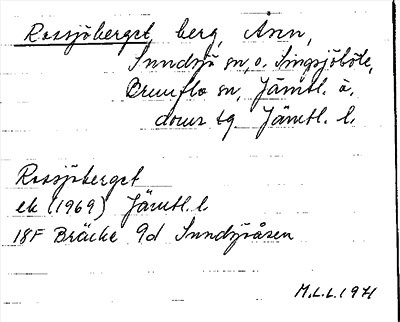 Rossjöberget, berg, Ann,
Sundsjö sn, o. Singsjöböle,
Brunflo sn, Jämtl. ö.
doms tg Jämtl. l.
Rossjöberget
ek (1969) Jämtl. l
18F Bräcke 9d Sundsjöåsen
M.L.L. 1971